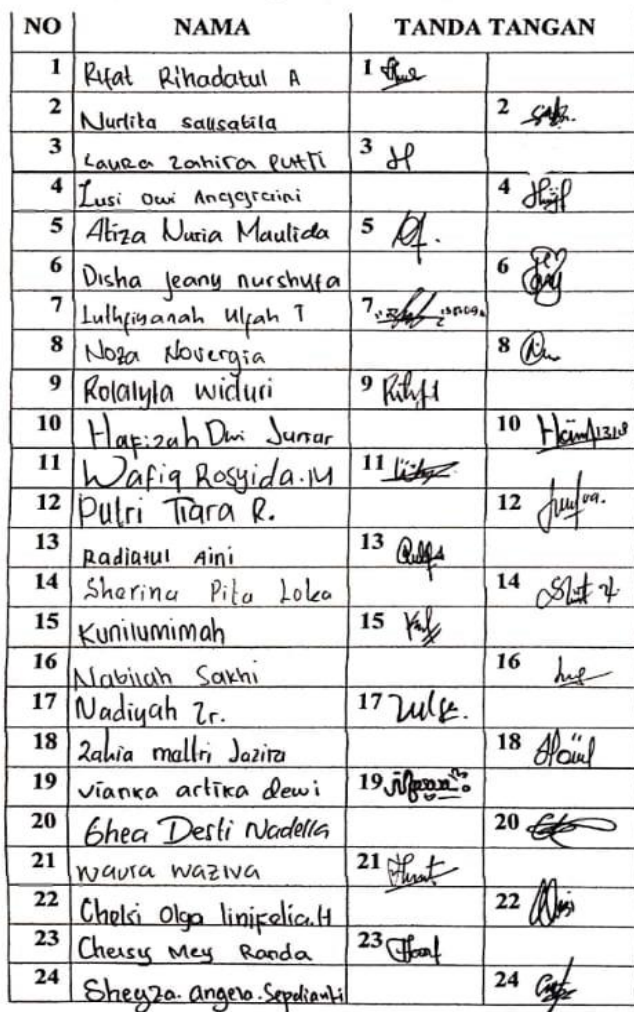 NO NAMA TANDA TANGAN
1 Rifat Rihadatul A 1
2 Nurlita salsabila 2
3 Laura Zahira Putri 3
4 Lusi Dwi Anggraini 4
5 Atiza Nuria Maulida 5
6 Disha Jeany nurshyfa 6
7 Luthfiyanah Ulfah T 7
8 Noza Novergia 8
9 Rolalyta widuri 9
10 Hafizah Dwi Junar 10
11 Wafiq Rosyida.M 11
12 Putri Tiara R. 12
13 Radiatul Aini 13
14 Sharina Pita Loka 14
15 Kunilumimah 15
16 Nabilah Sakhi 16
17 Nadiyah Zr. 17
18 Zahia malfri Jazira 18
19 vianka artika dewi 19
20 Ghea Desti Nadella 20
21 waura waziva 21
22 Chelsi Olga linifelia.H 22
23 Chersy Mey Randa 23
24 Sheyza.angela.Sepdianti 24